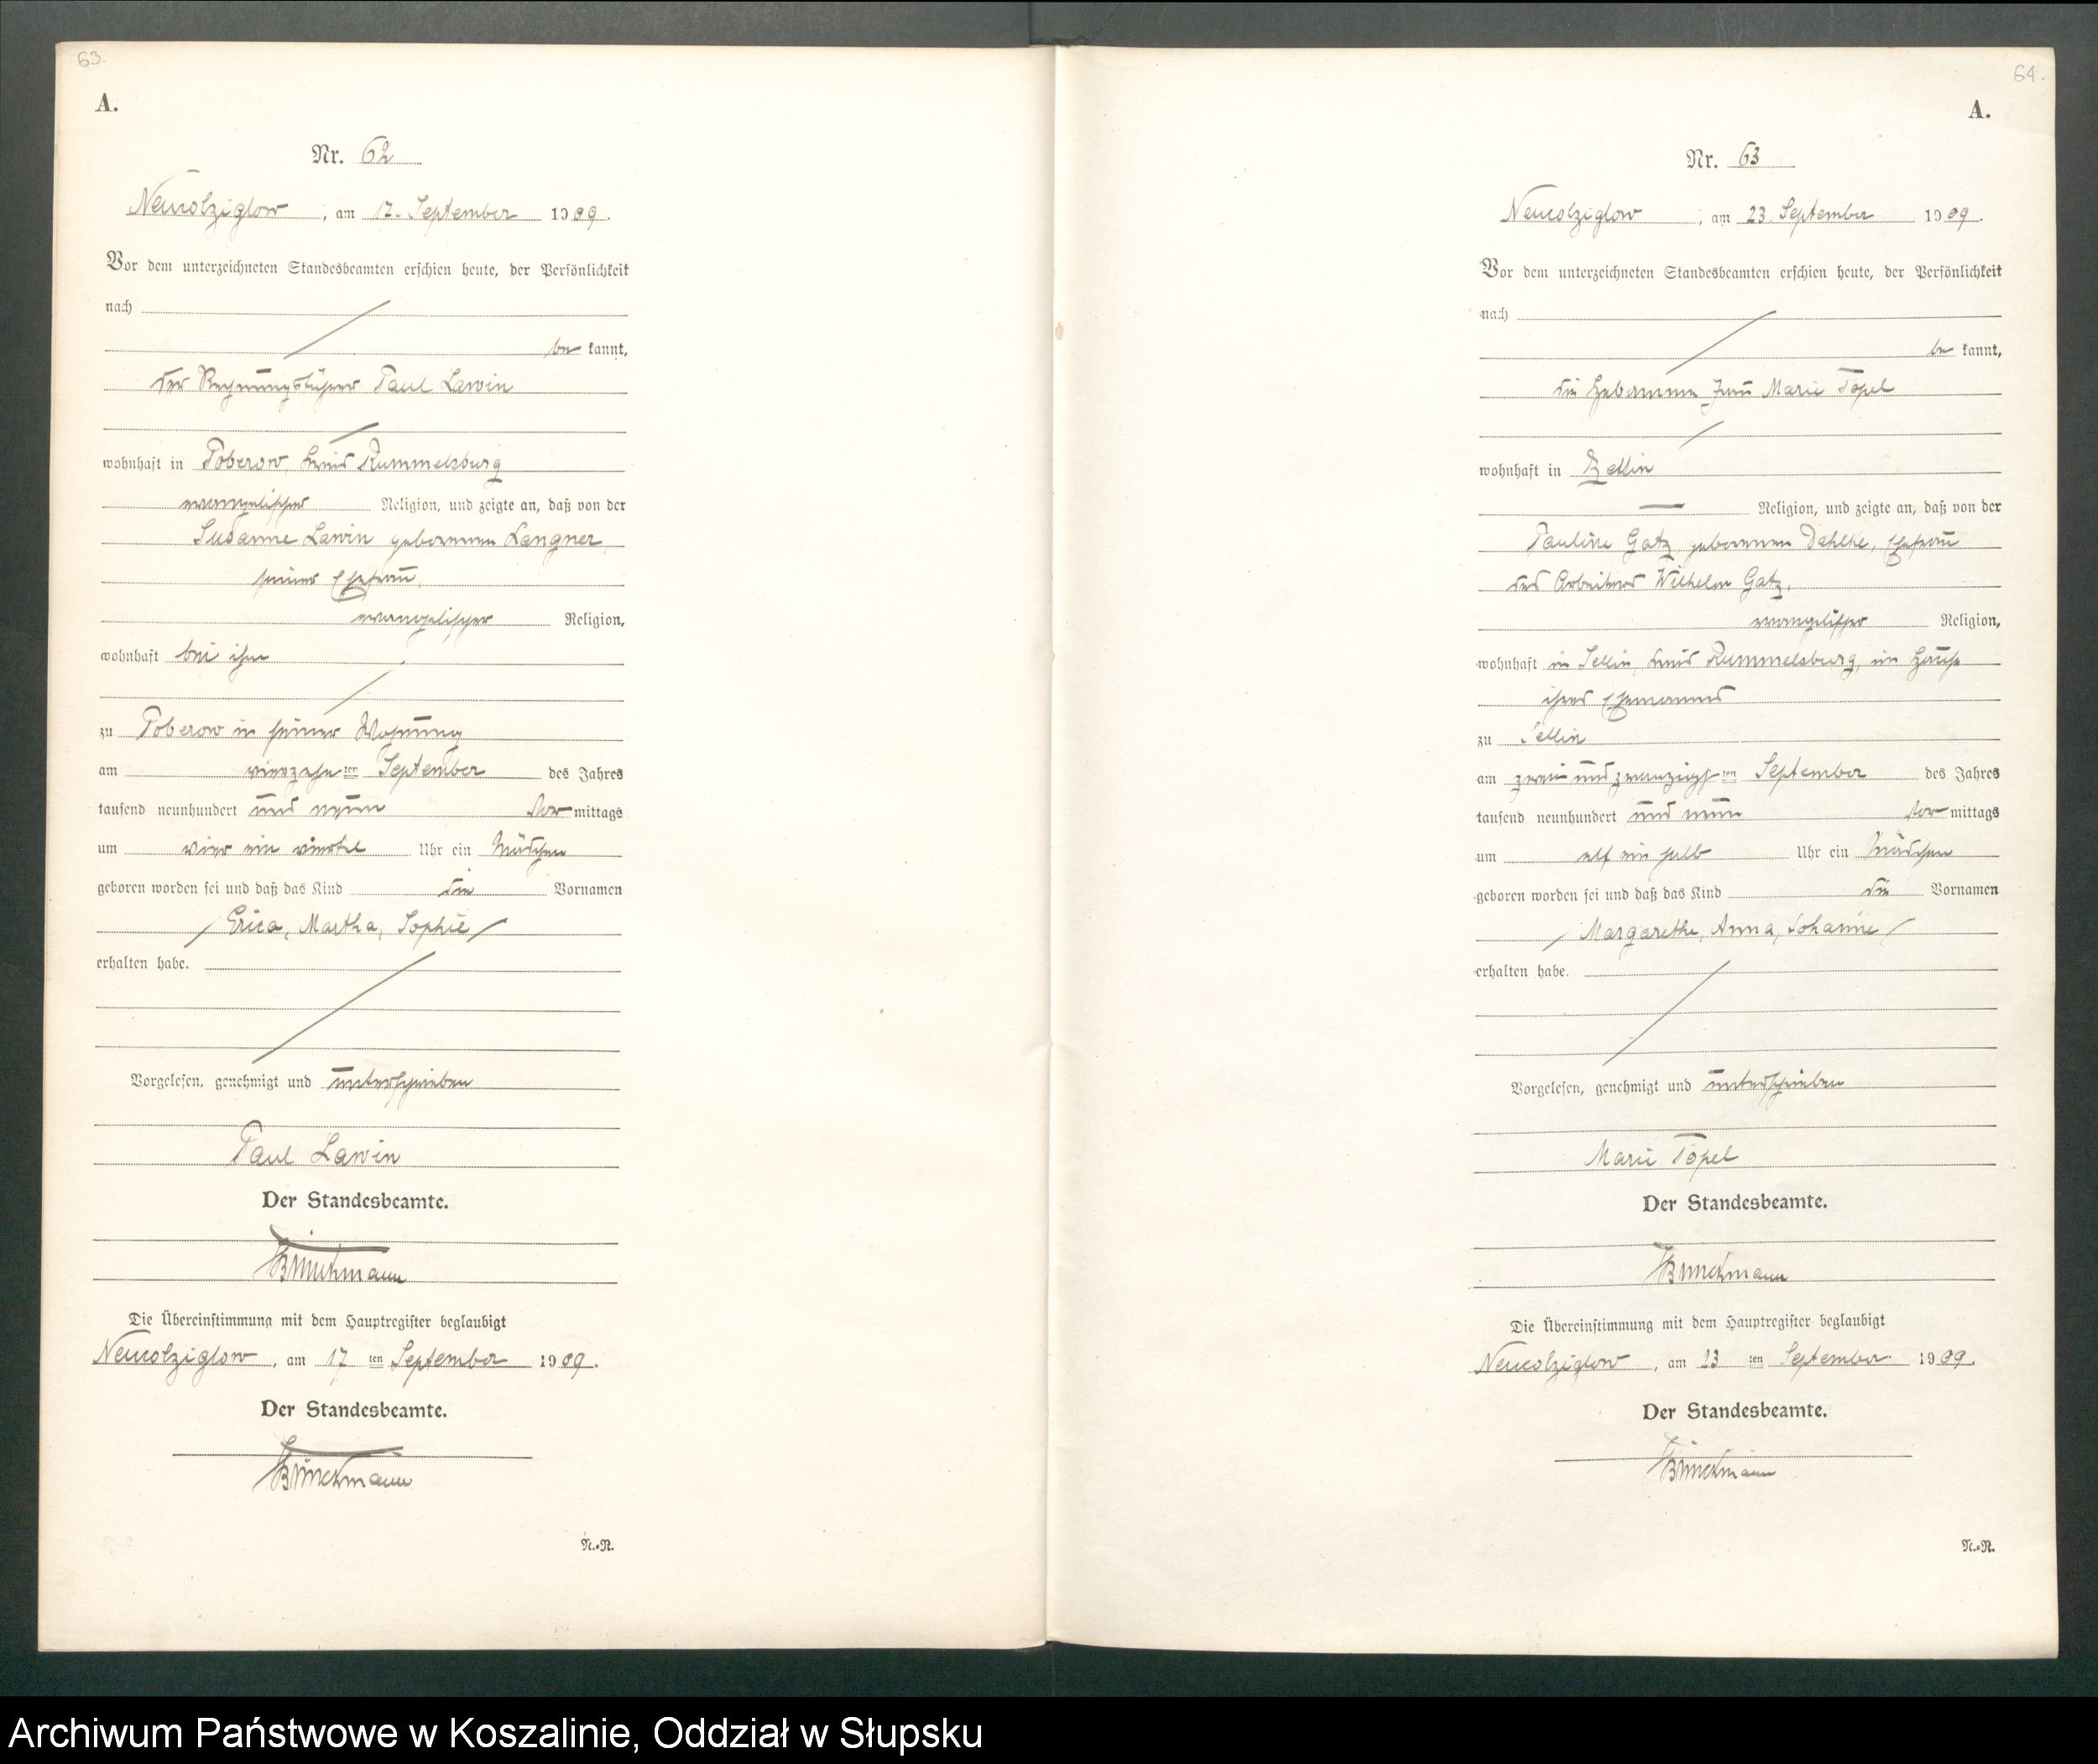 63.
A.
Nr. 62
Neukolziglow, am 17. September 1909.
Vor dem unterzeichneten Standesbeamten erschien heute, der Persönlichkeit
nach
be kannt,
der Rechnungsführer Paul Lawin
wohnhaft in Poberow, Kreis Rummelsburg
evangelischer Religion, und zeigte an, daß von der
Susanne Lawin geborenen Langner,
seiner Ehefrau,
evangelischer Religion,
wohnhaft bei ihm
zu Poberow in seiner Wohnung
am vierzehnten September des Jahres
tausend neunhundert und neun Vormittags
um vier ein viertel Uhr ein Mädchen
geboren worden sei und daß das Kind die Vornamen
Erica, Martha, Sophie
erhalten habe.
Vorgelesen, genehmigt und unterschrieben
Paul Lawin
Der Standesbeamte.
Brinckmann
Die Übereinstimmung mit dem Hauptregister beglaubigt
Neukolziglow, am 17ten September 1909.
Der Standesbeamte.
Brinckmann
N.-R.
64.
A.
Nr. 63
Neukolziglow, am 23. September 1909.
Vor dem unterzeichneten Standesbeamten erschien heute, der Persönlichkeit
nach
be kannt,
die Hebamme Frau Marie Töpel
wohnhaft in Zettin
Religion, und zeigte an, daß von der
Pauline Gatz geborenen Dahlke, Ehefrau
des Arbeiters Wilhelm Gatz,
evangelischer Religion,
wohnhaft in Sellin, Kreis Rummelsburg, im Hause
ihres Ehemannes
zu Sellin
am zwei und zwanzigsten September des Jahres
tausend neunhundert und neun Vormittags
um elf ein halb Uhr ein Mädchen
geboren worden sei und daß das Kind die Vornamen
Margarethe, Anna, Johanne
erhalten habe.
Vorgelesen, genehmigt und unterschrieben
Marie Töpel
Der Standesbeamte.
Brinckmann
Die Übereinstimmung mit dem Hauptregister beglaubigt
Neukolziglow, am 23ten September 1909.
Der Standesbeamte.
Brinckmann
N.-R.
Archiwum Państwowe w Koszalinie, Oddział w Słupsku